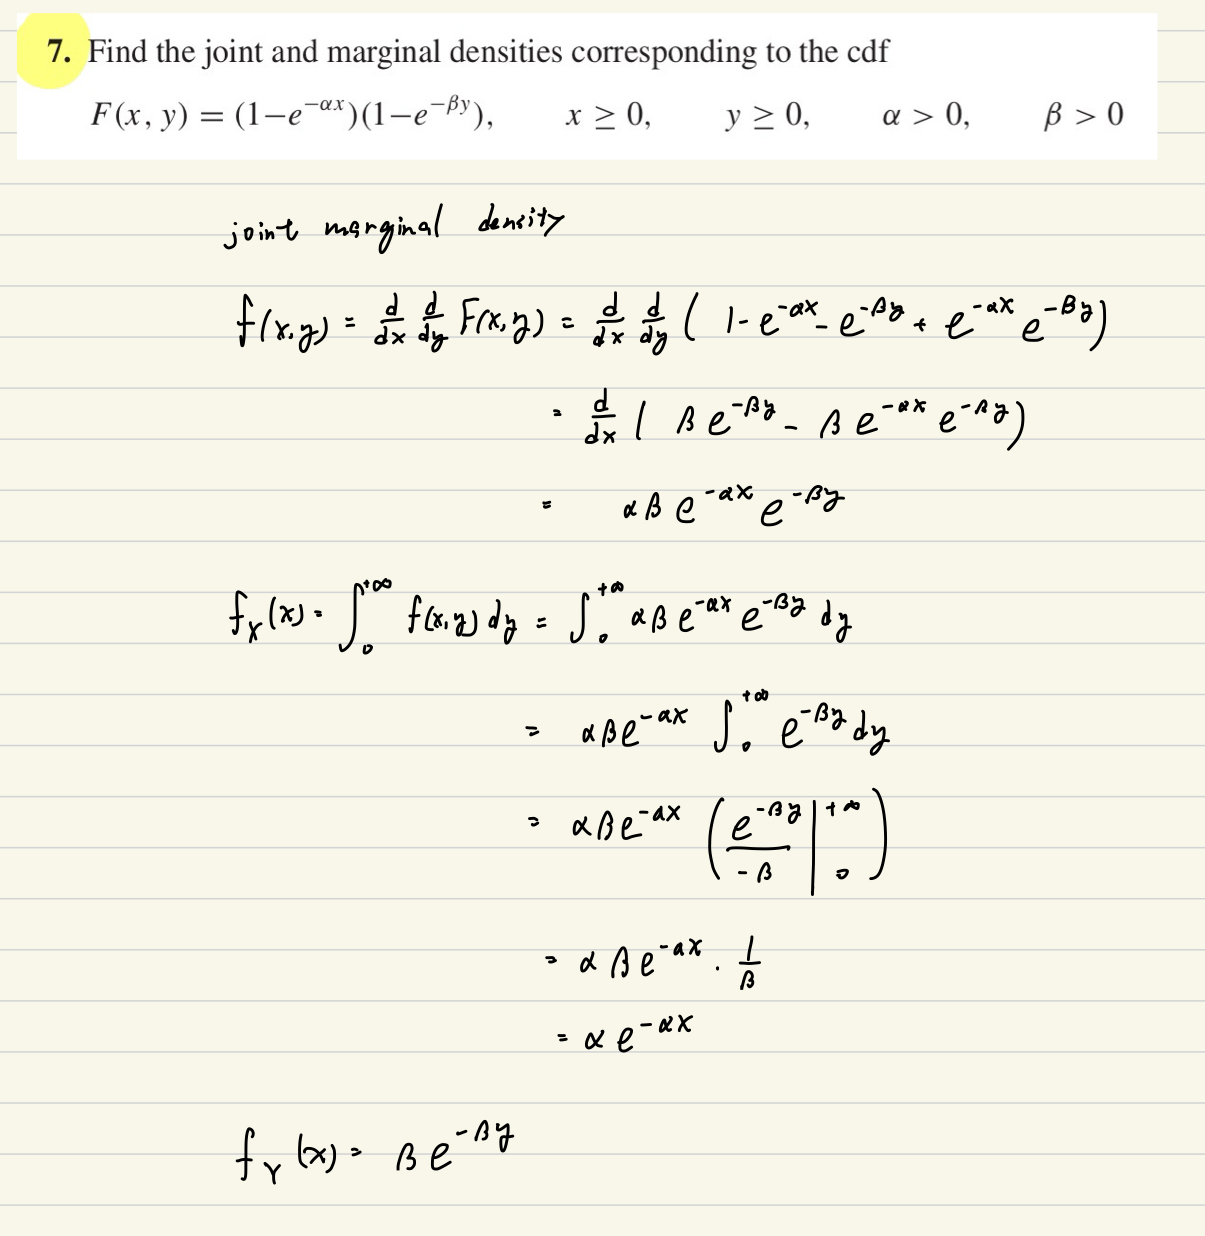 7. Find the joint and marginal densities corresponding to the cdf
F(x, y) = (1−e^{−αx})(1−e^{−βy}), x ≥ 0, y ≥ 0, α > 0, β > 0
joint marginal density
f(x,y) = d/dx d/dy F(x,y) = d/dx d/dy ( 1 - e^{-αx} - e^{-βy} + e^{-αx} e^{-βy})
= d/dx ( β e^{-βy} - β e^{-αx} e^{-βy})
= αβ e^{-αx} e^{-βy}
f_X(x) = ∫_0^{+∞} f(x,y) dy = ∫_0^{+∞} αβ e^{-αx} e^{-βy} dy
= αβe^{-αx} ∫_0^{+∞} e^{-βy} dy
= αβe^{-αx} ( e^{-βy}/-β |_0^{+∞} )
= αβe^{-αx} · 1/β
= αe^{-αx}
f_Y(x) = βe^{-βy}